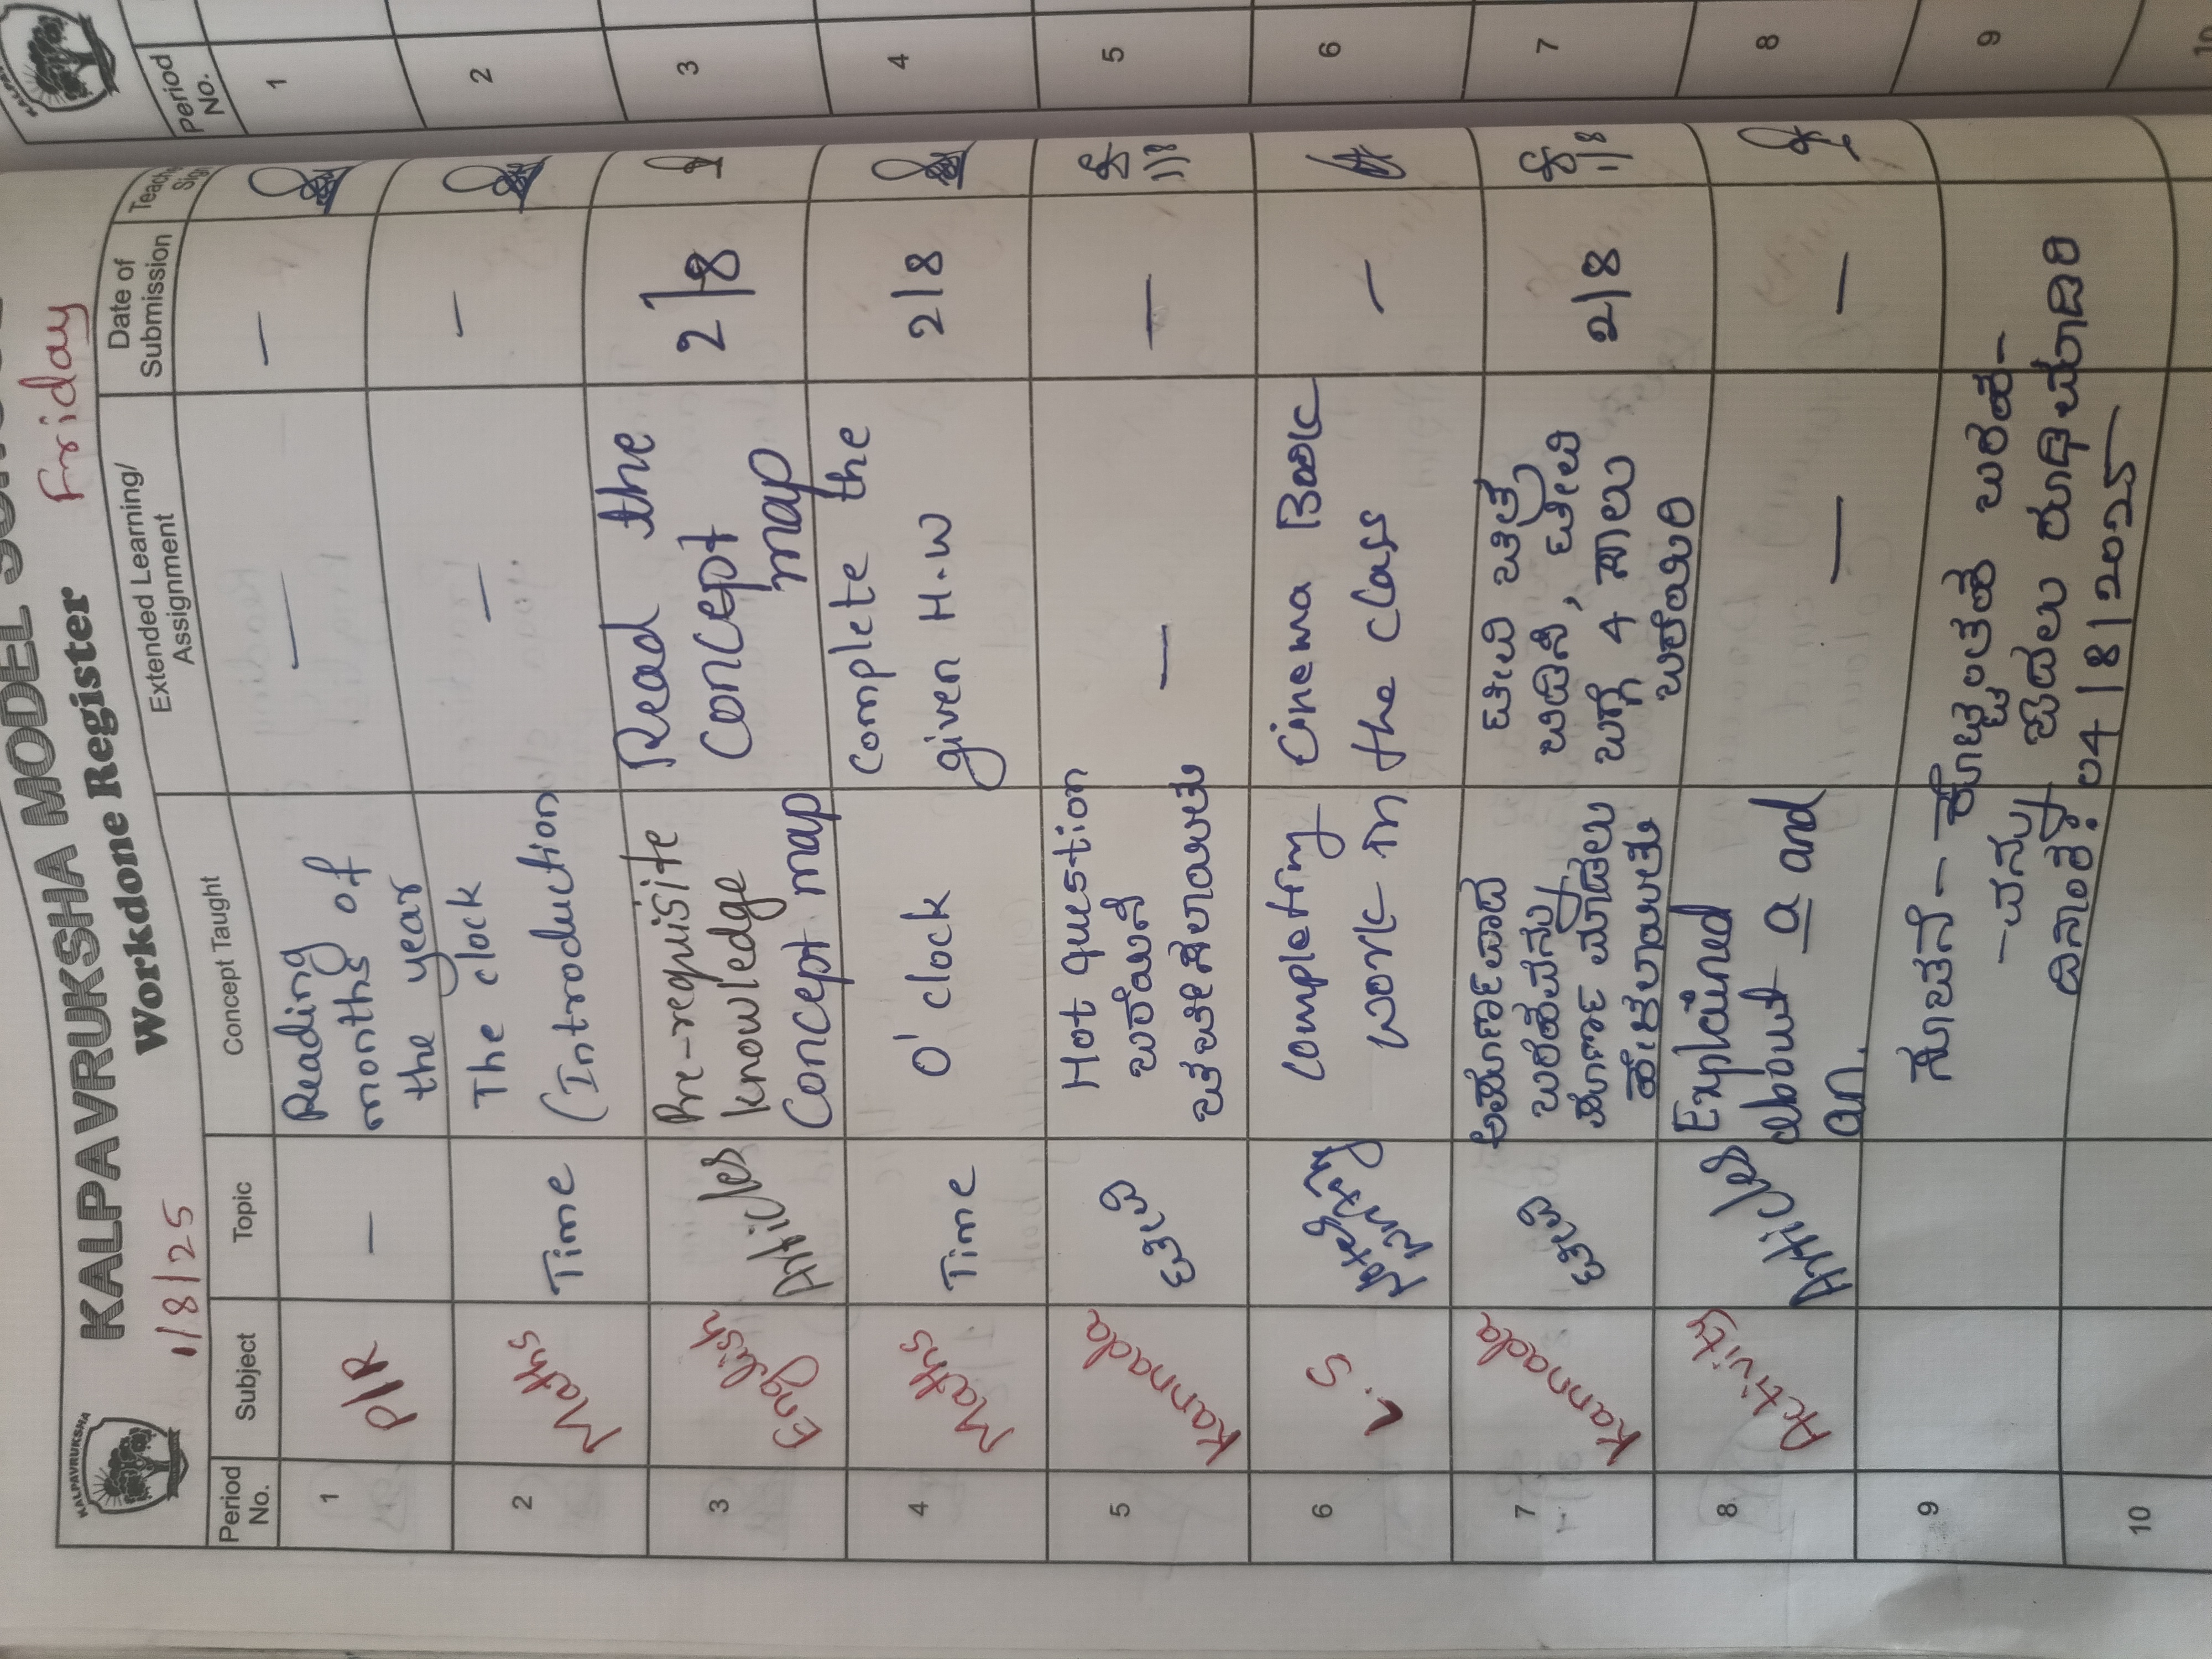 KALPAVRUKSHA
KALPAVRUKSHA MODEL
1/8/25
Workdone Register
Friday
Period No. Subject Topic Concept Taught Extended Learning/ Assignment Date of Submission
1 P/R — Reading months of the year — —
2 Maths Time The clock (Introduction — —
3 English Articles Pre-requisite knowledge Concept map Read the concept map 2/8
4 Maths Time O' clock Complete the given H.W 2/8
5 Kannada Hot question ಬರೆಯಿಸಿ — — 1/8
6 V.S completing work in the class Cinema Book —
7 Kannada ಅಪೂರ್ಣವಾದ ಬರಹವನ್ನು ಪೂರ್ಣ ಮಾಡಲು ಹೇಳಲಾಯಿತು ಬಗ್ಗೆ 4 ಸಾಲು ಬರೆಯಿರಿ 2/8 1/8
8 Activity Articles Explained about a and an. — —
9 ಸೂಚನೆ -
04/8/2025
10
Period No.
1
2
3
4
5
6
7
8
9
10